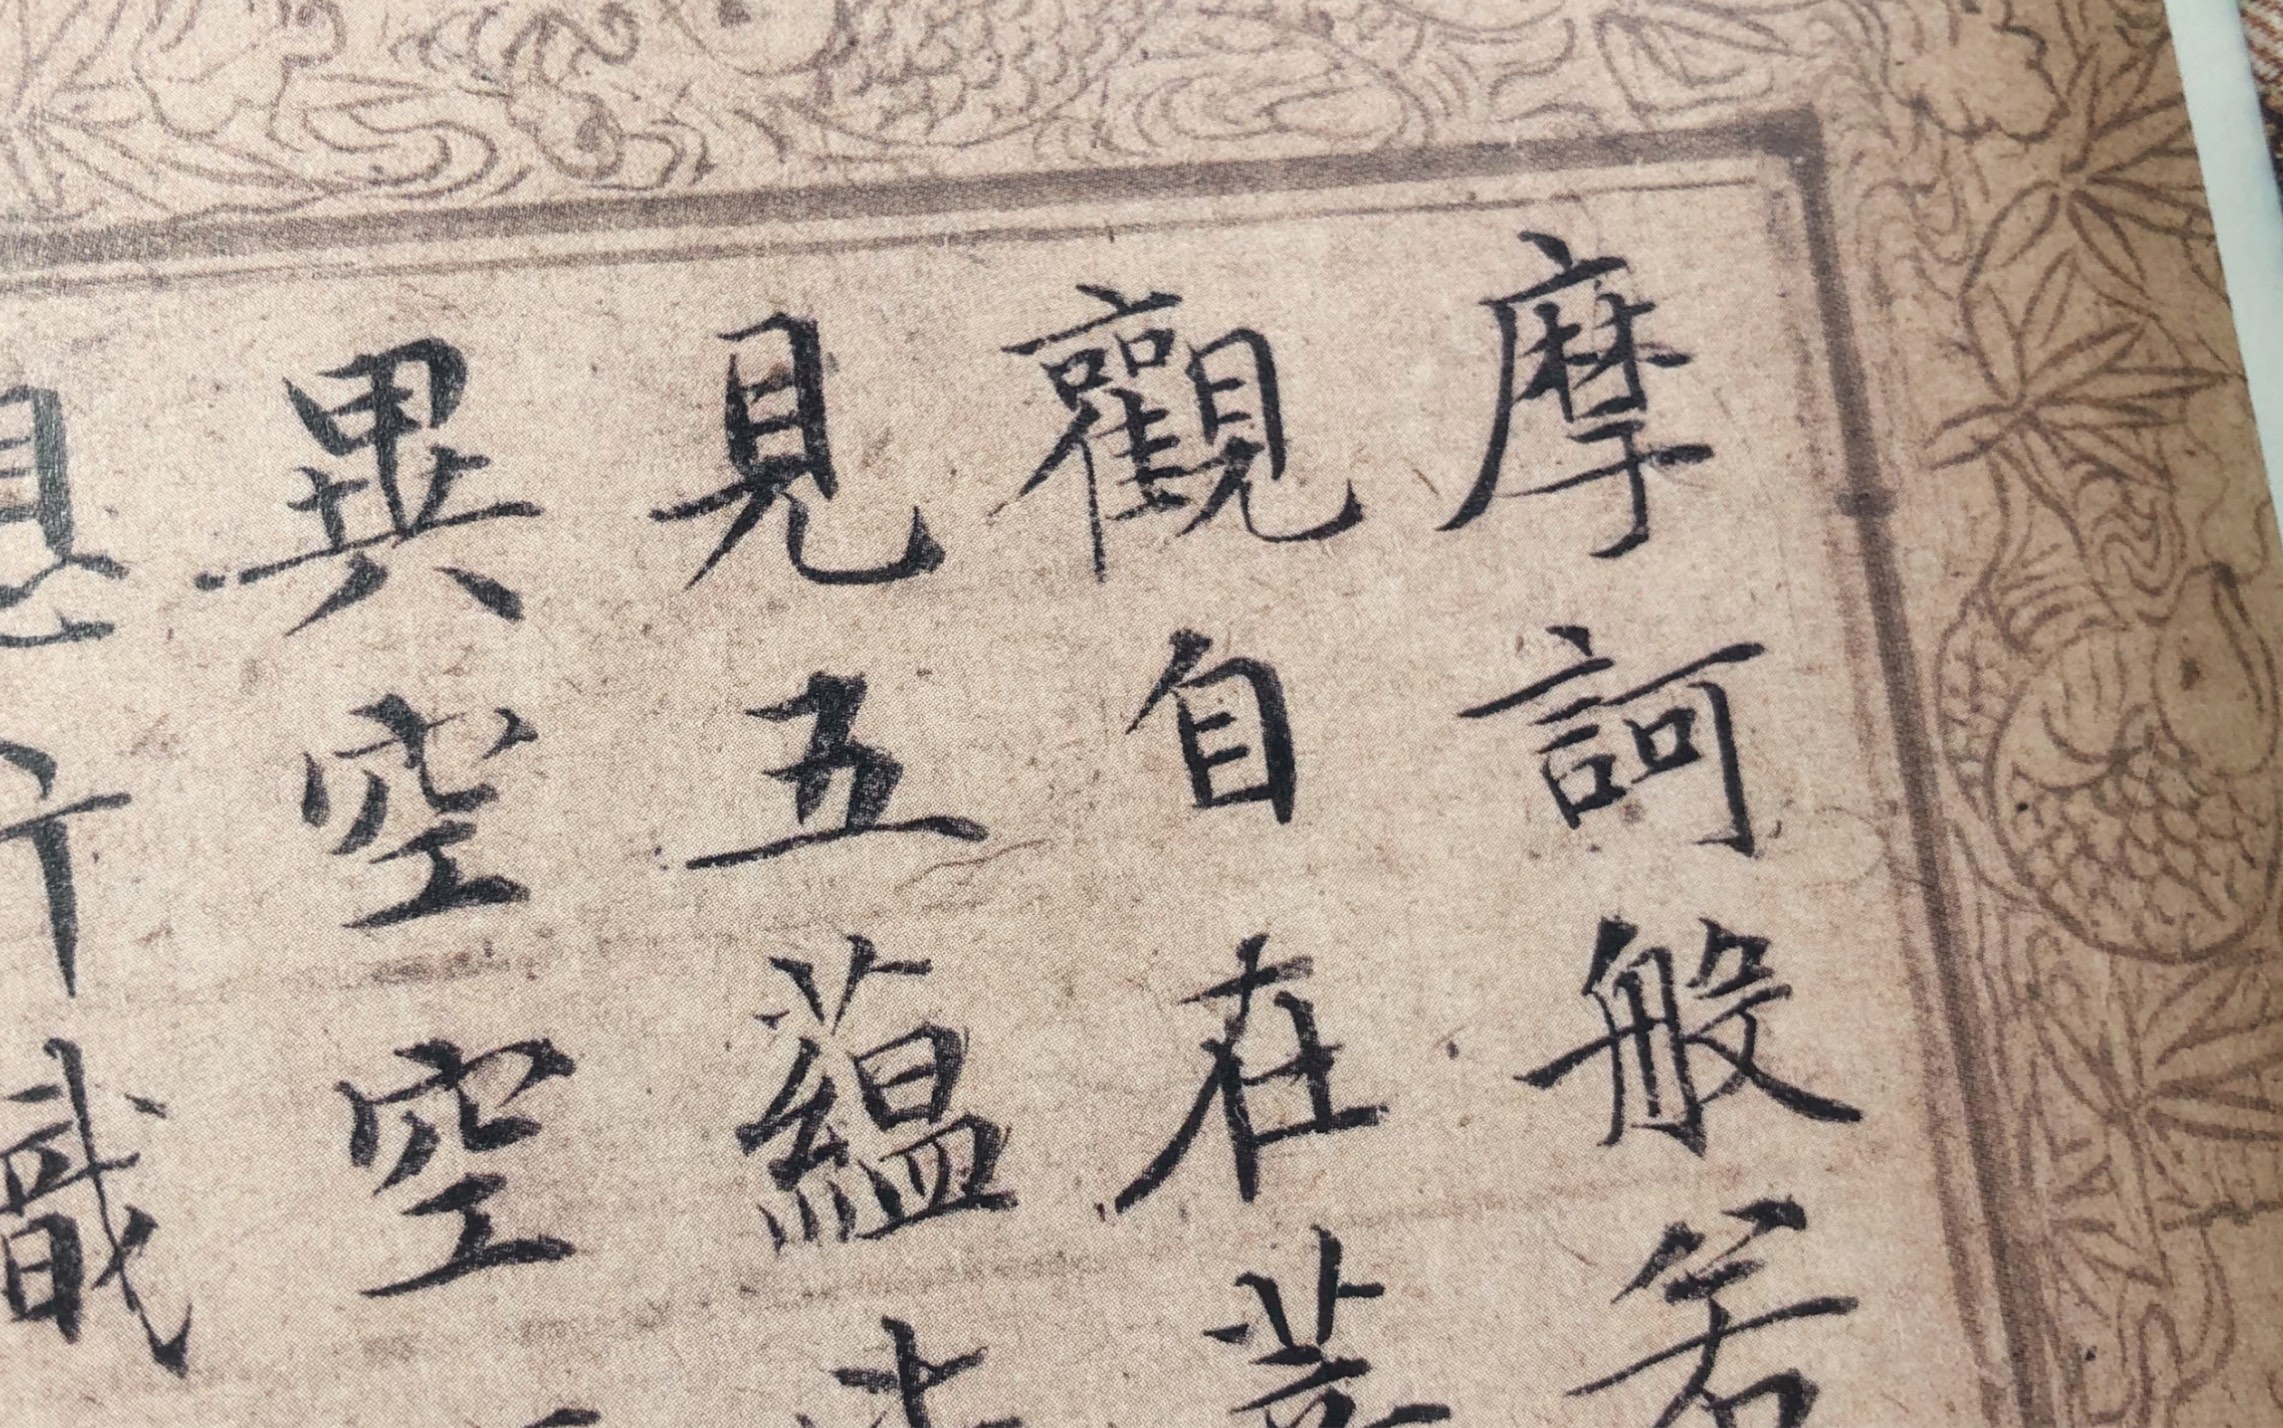 摩訶般若
觀自在菩
見五蘊
異空空